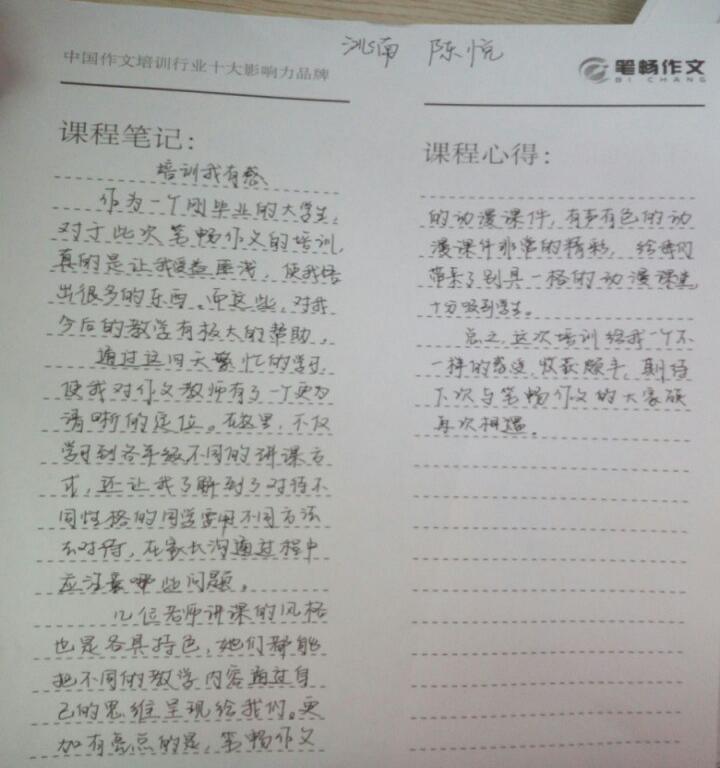 洮南 陈悦
中国作文培训行业十大影响力品牌
笔畅作文
BI CHANG
课程笔记:
培训我有感
作为一个刚毕业的大学生,
对于此次笔畅作文的培训,
真的是让我受益匪浅,使我悟
出很多的东西。而这些,对我
今后的教学有极大的帮助。
通过这四天繁忙的学习,
使我对作文教师有了一个更为
清晰的定位。在这里,不仅
学习到各年级不同的讲课方
式,还让我了解到了对待不
同性格的同学要用不同方法
去对待,在家长沟通过程中
应注意哪些问题。
几位老师讲课的风格
也是各具特色,她们都能
把不同的教学内容通过自
己的思维呈现给我们。更
加有亮点的是,笔畅作文
课程心得:
的动漫课件,有声有色的动
漫课件非常的精彩,给我们
带来了别具一格的动漫课堂
十分吸引学生。
总之,这次培训给我一个不
一样的感受,收获颇丰,期待
下次与笔畅作文的大家族
再次相遇。